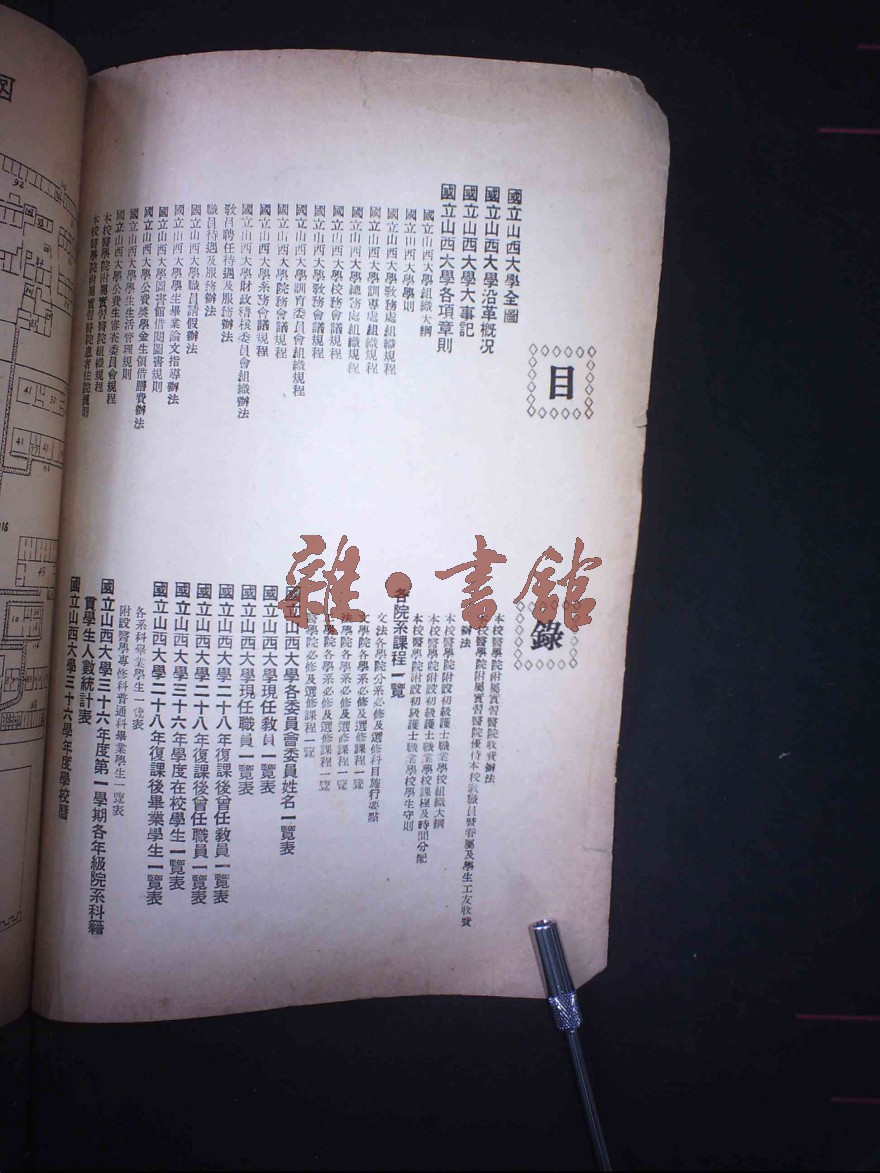 目錄
國立山西大學全圖
國立山西大學沿革概況
國立山西大學大事記
國立山西大學各項章則
國立山西大學組織大綱
國立山西大學學則
國立山西大學教務處組織規程
國立山西大學訓導處組織規程
國立山西大學總務處組織規程
國立山西大學校務會議規程
國立山西大學教務會議規程
國立山西大學訓育委員會組織規程
國立山西大學院務會議規程
國立山西大學系務會議規程
國立山西大學財政稽核委員會組織辦法
教員聘任待遇及服務辦法
職員待遇及服務辦法
國立山西大學職員請假辦法
國立山西大學學生畢業論文指導辦法
國立山西大學圖書館借閱圖書規則
國立山西大學公費獎學金生領借膳費辦法
國立山西大學學生生活管理規則
國立山西大學公費生審查委員會規程
本校醫學院附屬實習醫院組織規程
本校醫學院附屬實習醫院患者住院規則
本校醫學院附屬實習醫院收費辦法
本校醫學院附屬實習醫院優待本校教職員暨眷屬及學生工友收費
辦法
本校醫學院附設初級護士職業學校組織大綱
本校醫學院附設初級護士職業學校課程及時間分配
本校醫學院附設初級護士職業學校學生守則
各院系課程一覽
文法各學院分系必修及選修科目施行要點
文學院各學系必修及選修課程一覽
法學院各學系必修及選修課程一覽
學院各學系必修及選修課程一覽
醫學院必修及選修課程一覽
國立山西大學各委員會委員姓名一覽表
國立山西大學現任教員一覽表
國立山西大學現任職員一覽表
國立山西大學二十八年復課後曾任教員一覽表
國立山西大學二十八年復課後曾任職員一覽表
國立山西大學三十六年學度在校學生一覽表
國立山西大學二十八年復課後畢業學生一覽表
各系科畢業學生一覽表
附設醫學專修科普通科畢業學生一覽表
國立山西大學三十六年度第一學期各年級院系科籍
貫學生人數統計表
國立山西大學三十六學年度學校曆
雜·書館
41
41
45
16